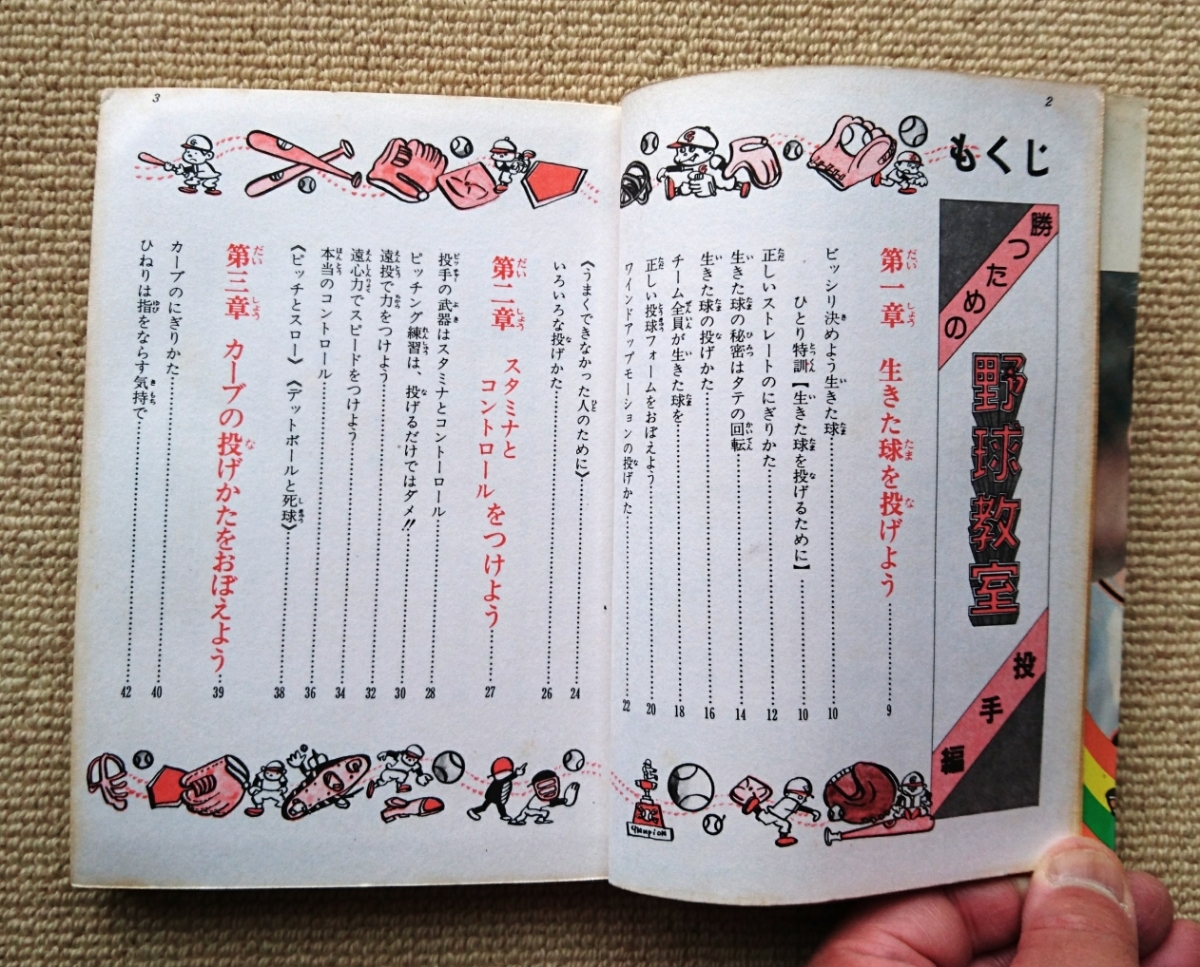 2
もくじ
勝つための
野球教室
投手編
第一章 生きた球を投げよう……9
ビッシリ決めよう生きた球……10
ひとり特訓【生きた球を投げるために】……10
正しいストレートのにぎりかた……12
生きた球の秘密はタテの回転……14
生きた球の投げかた……16
チーム全員が生きた球を……18
正しい投球フォームをおぼえよう……20
ワインドアップモーションの投げかた……22
3
《うまくできなかった人のために》……24
いろいろな投げかた……26
第二章 スタミナと
コントロールをつけよう……27
投手の武器はスタミナとコントーロール……28
ピッチング練習は、投げるだけではダメ!!……30
遠投で力をつけよう……32
遠心力でスピードをつけよう……34
本当のコントロール……36
《ピッチとスロー》《デットボールと死球》……38
第三章 カーブの投げかたをおぼえよう……39
カーブのにぎりかた……40
ひねりは指をならす気持で……42